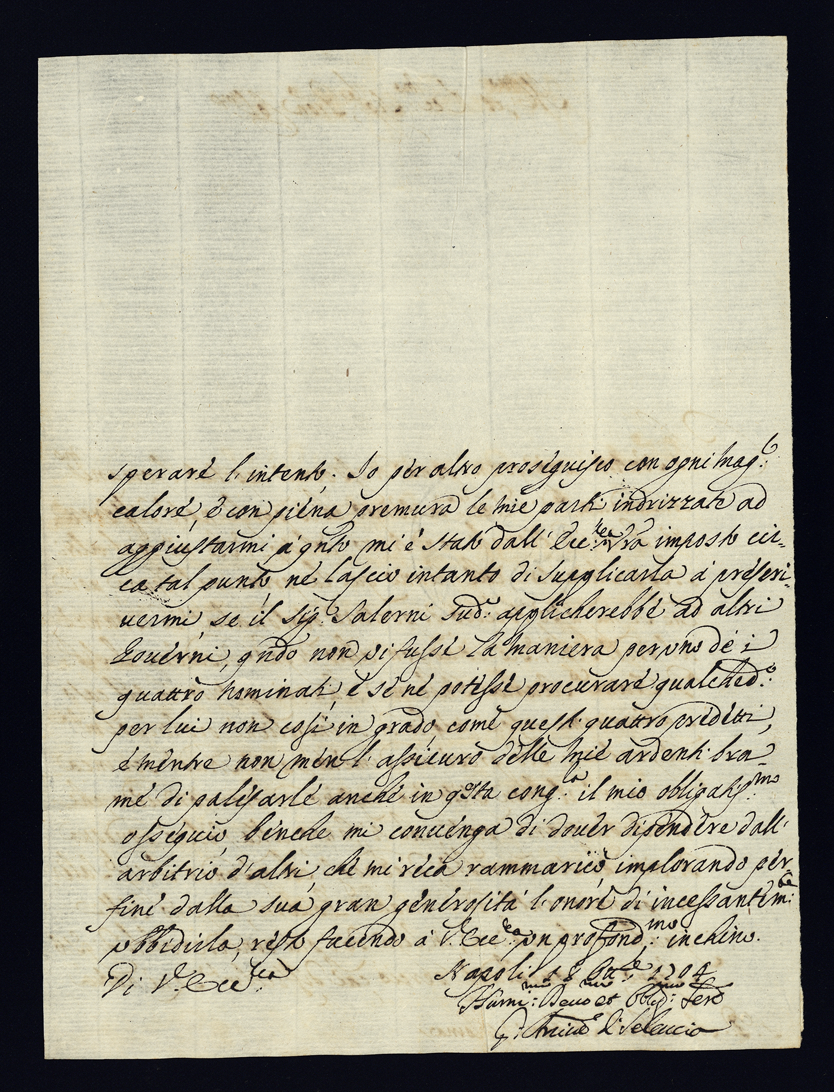 sperare l'intento. Io per altro proseguisco con ogni mag.r
calore, è con piena premura le mie parti indrizzate ad
aggiustarmi à qnto mi è stato dall' Ecc.za Vra imposto cir=
ca tal punto, nè lascio intanto di supplicarla à preseri=
vermi, se il sig.r Salerni sud.o applicherebbe ad altri
Governi, qndo non vi fusse la maniera per uno de i
quattro nominati, è se nè potesse procurare qualched.o
per lui non così in grado come questi quattro predetti,
è mentre non men l'assicuro delle mie ardenti bra=
me di palesarle anche in qsta cong.a il mio obligatis.mo
ossequio, benche mi convenga di dover dipendere dall'
arbitrio d'altri, che mi reca rammarico, implorando per
fine dalla sua gran generosità l'onore di incessantem.te
ubbidirla, resto facendo à V. Ecc.za un profond.mo inchino.
Di V. Ecc.za Napoli
Humi.mo Devo.mo et Oblig.mo Serv.